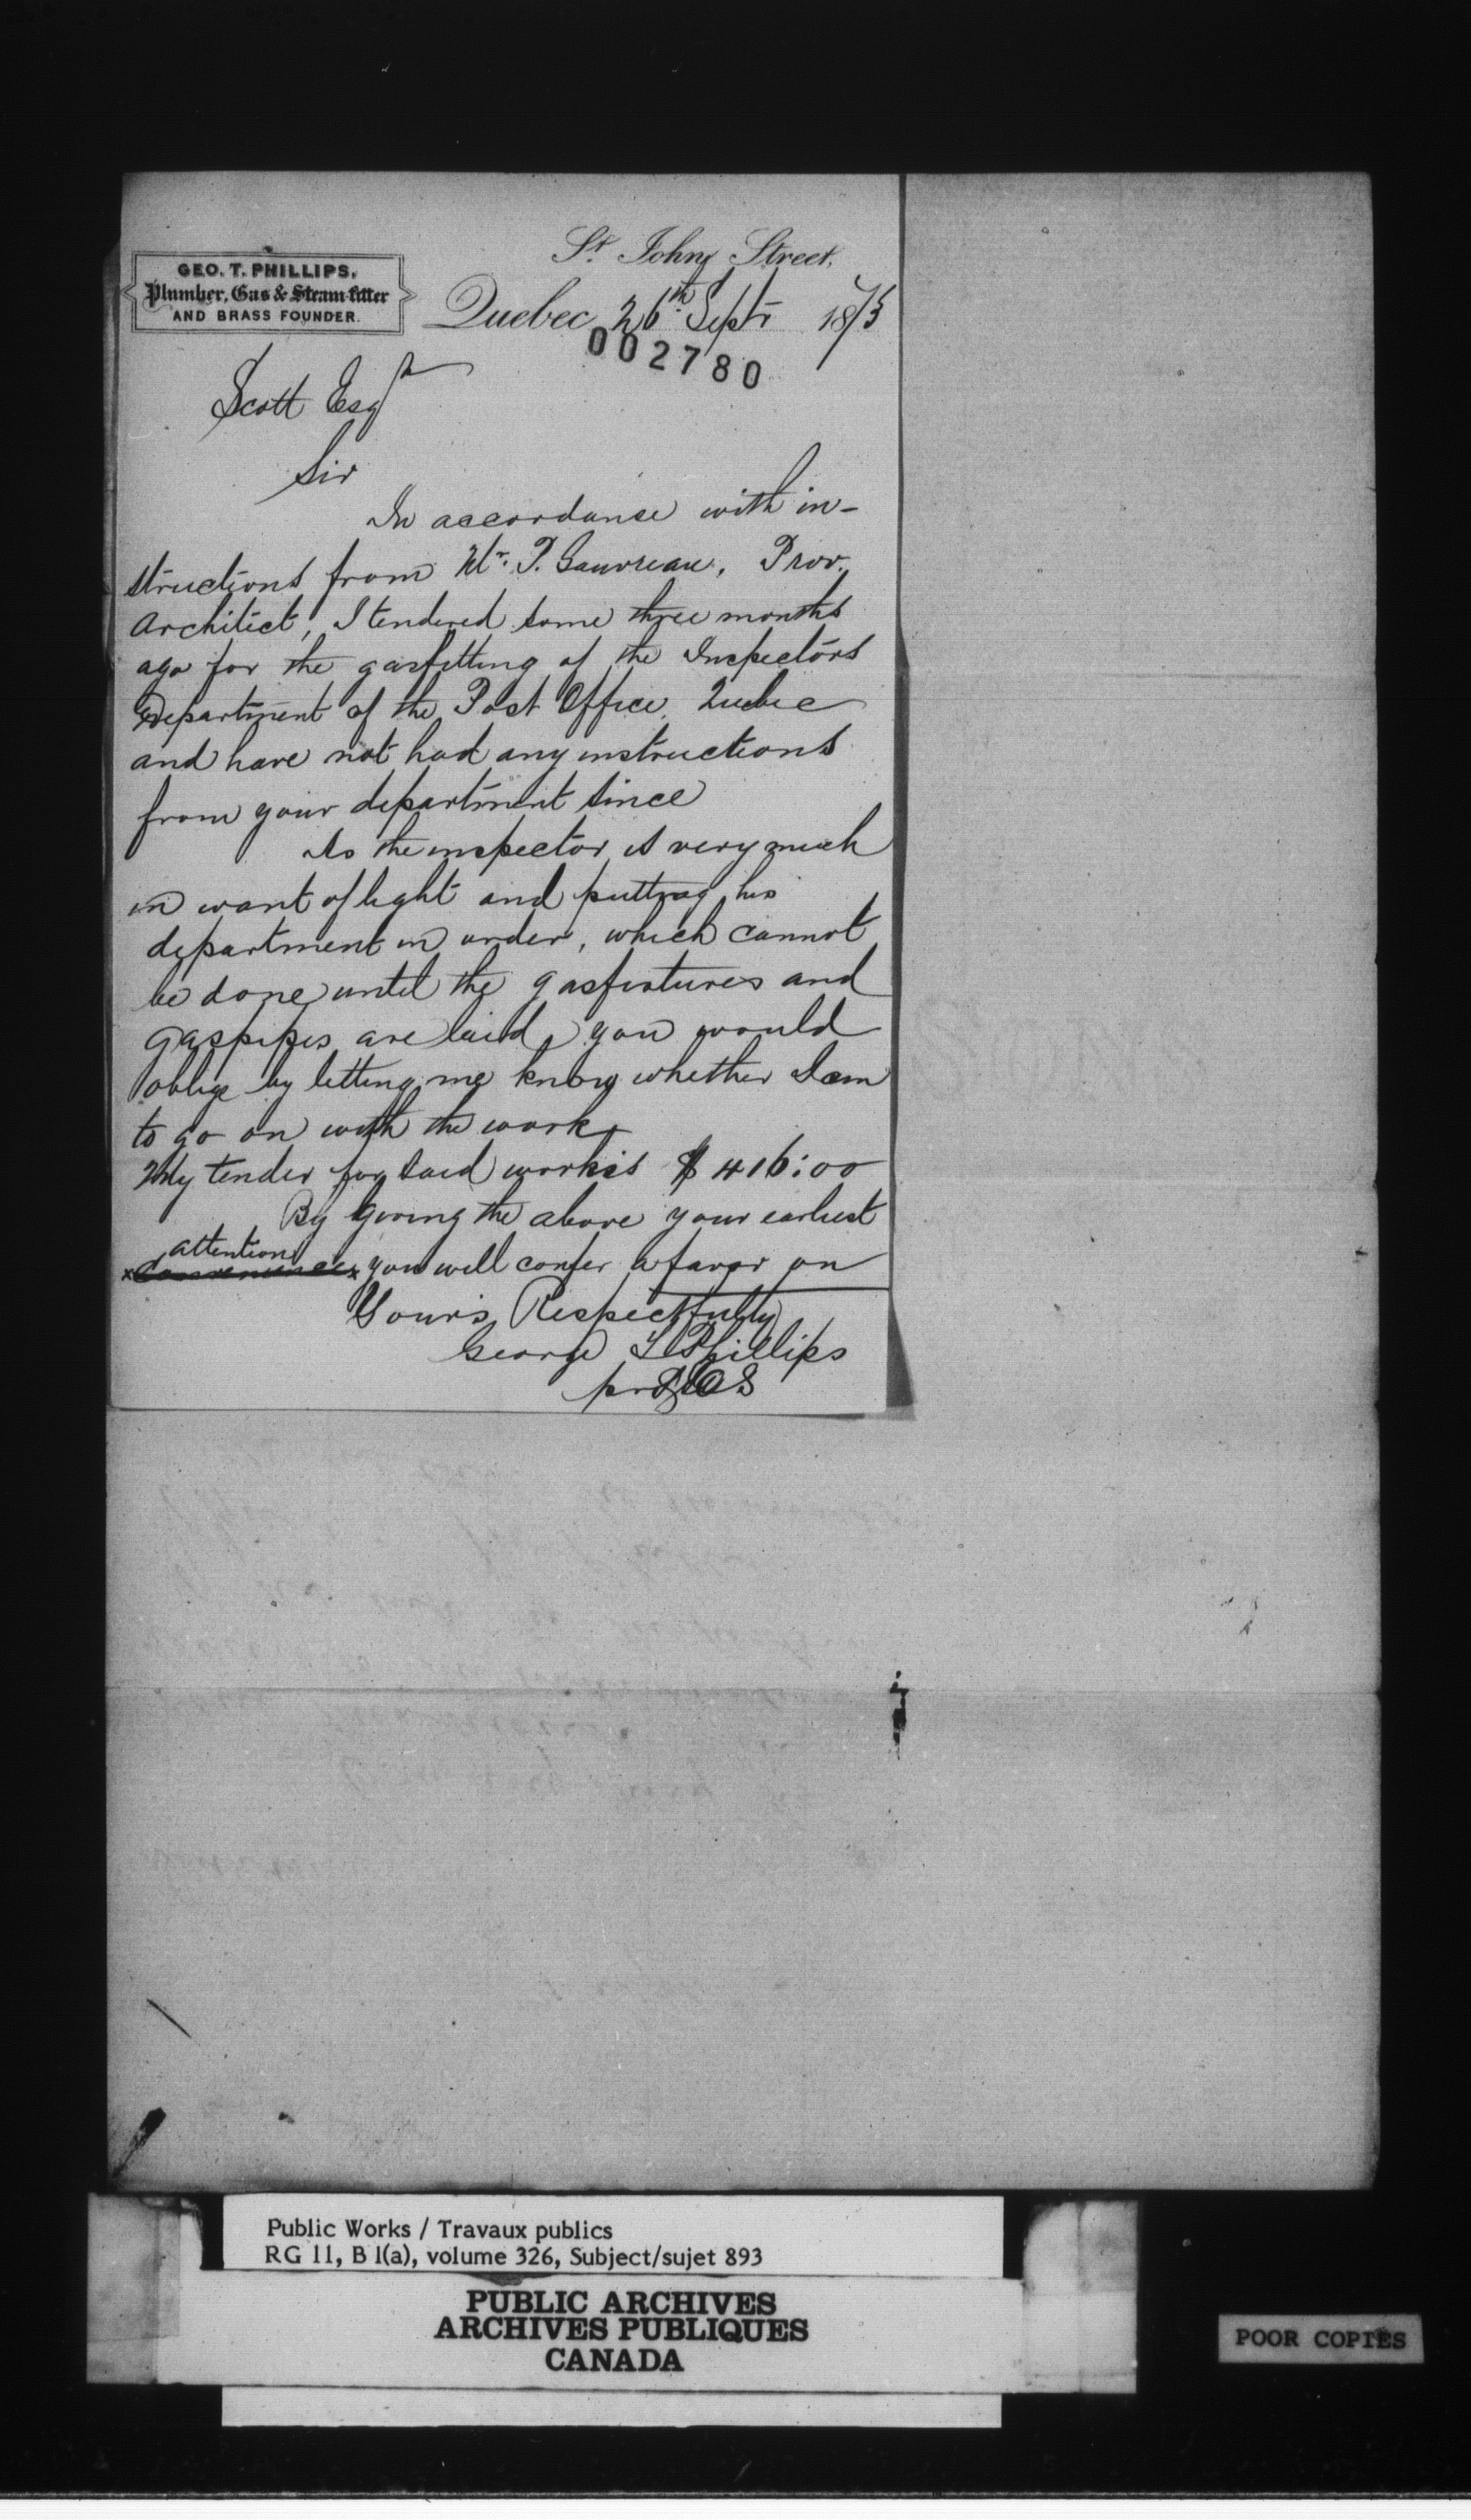 St. Johns Street,
GEO. T. PHILLIPS,
Plumber, Gas & Steam-fitter
AND BRASS FOUNDER.
Quebec, 26th Septr 1873
002780
Scott Esqr
Sir
In accordanse with in-
structions from Mr. P. Gauvreau, Prov.
Architect, I tendered some three months
ago for the gasfitting of the Inspectors
Department of the Post Office, Quebec
and have not had any instructions
from your department since
As the inspector is very much
in want of light and putting his
department in order, which cannot
be done until the gasfixtures and
gaspipes are laid, you would
oblige by letting me know whether I am
to go on with the work,
My tender for said work is $416:00
By giving the above your earliest
attention
convenience you will confer a favor on
Your's Respectfully
George T Phillips
pr
Public Works / Travaux publics
RG 11, B 1(a), volume 326, Subject/sujet 893
PUBLIC ARCHIVES
ARCHIVES PUBLIQUES
CANADA
POOR COPIES